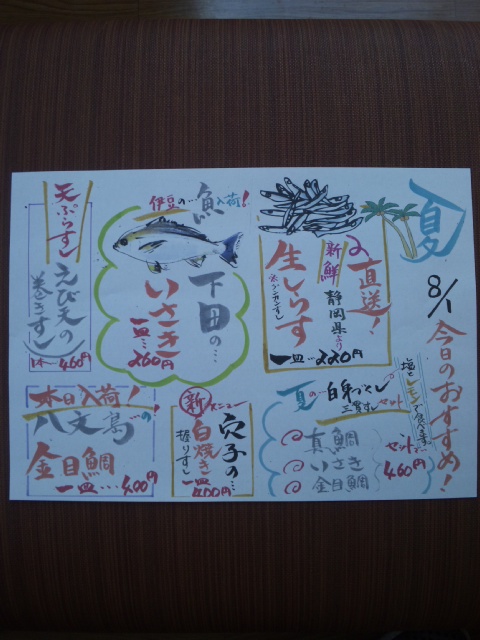 夏
8/1 今日のおすすめ!
直送!
新鮮 静岡県より
生しらす
※グンカンすし
一皿…220円
伊豆の…魚入荷!
下田の…
いさき
一皿…260円
天ぷらすし
えび天の
巻きすし
1本〜460円
夏の…白身づくし
三貫すし セット
塩とレモンで食べます
真鯛
いさき
金目鯛
セット
460円
新メニュー
穴子の…
白焼き
握りすし
一皿400円
本日入荷!
八丈島の!
金目鯛
一皿…400円